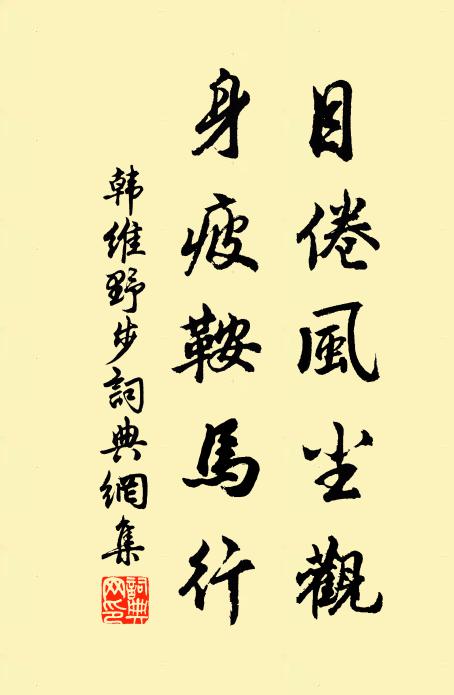 目倦風尘觀
身疲鞍馬行
韩維野步詞典網集
詞典网印